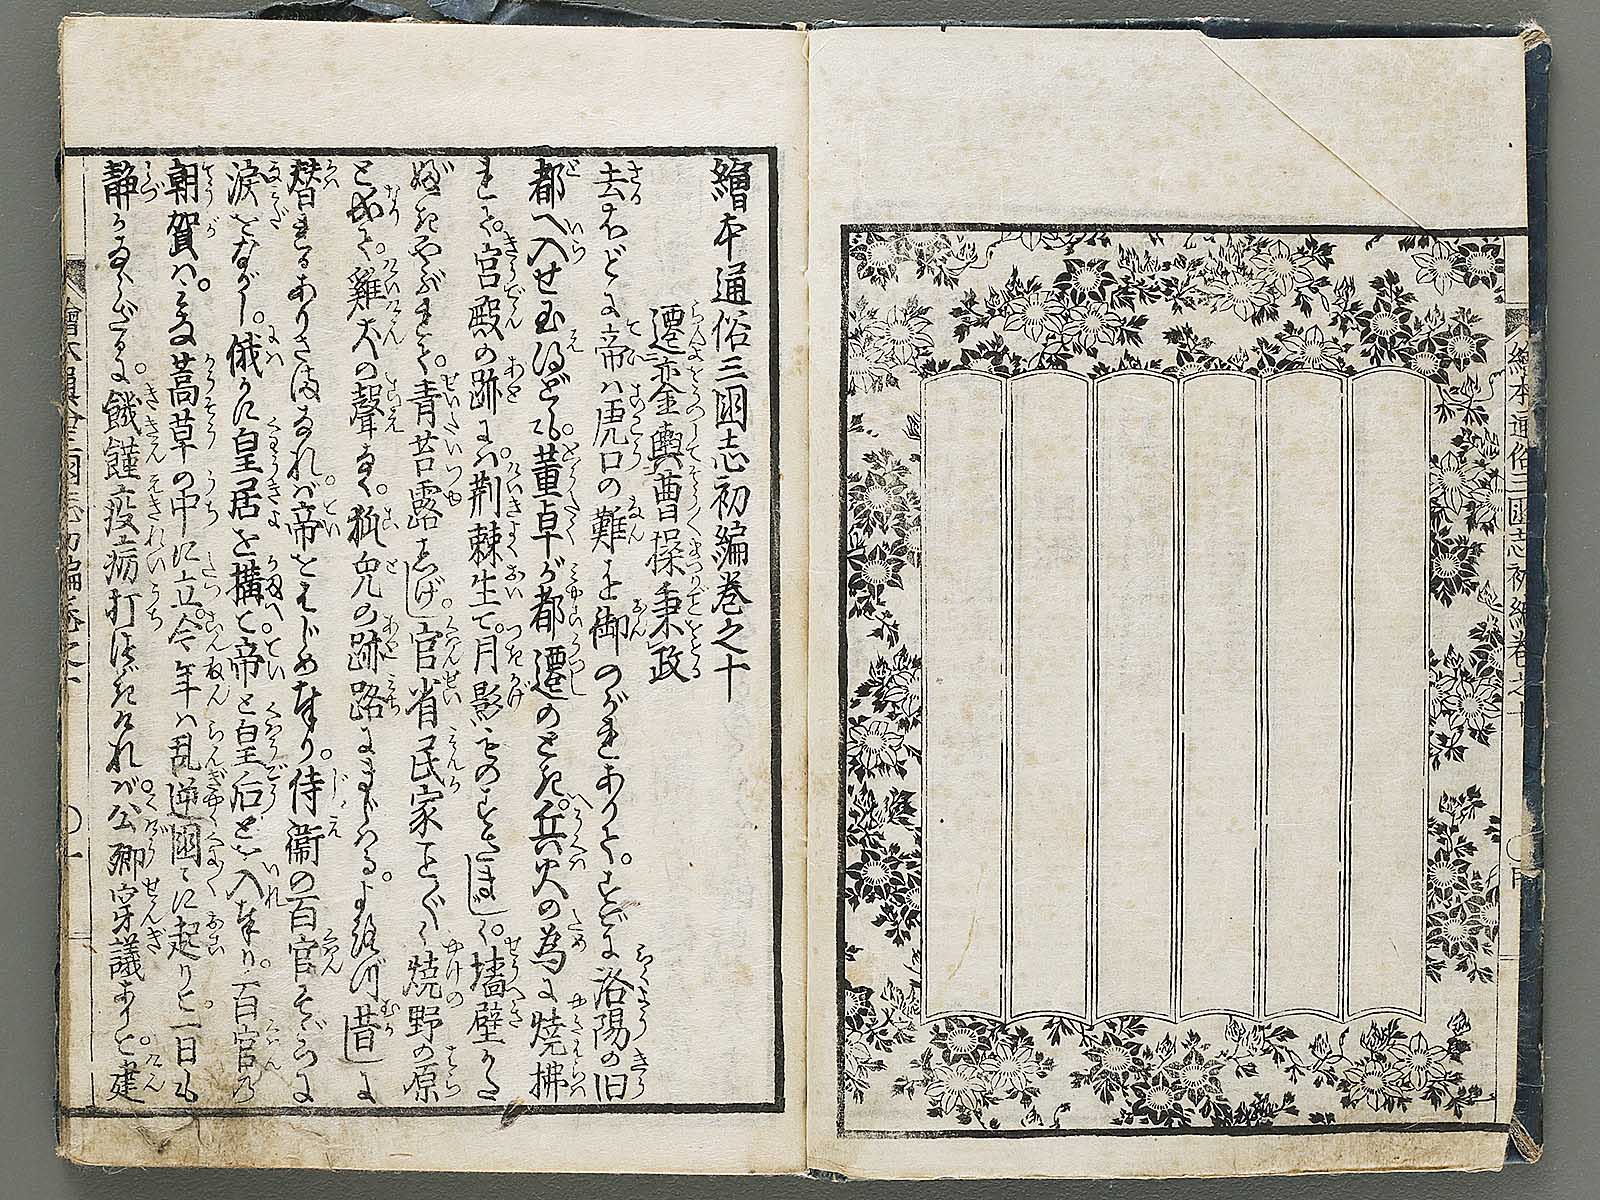 繪本通俗三国志初編巻之十
繪本通俗三国志初編巻之十
遷金輿曹操秉政
去ほどに帝ハ虎口の難を御のがれありて。すでに洛陽の旧
都へ入せ玉ひ得ども。董卓が都遷のとき。兵火の為に焼拂
れて。宮殿の跡にハ。荊棘生て。月影ものすさまじく。墻壁かた
ぶきやぶれて。青苔露しげし。官省民家ことごとく焼野の原
と成て。雞犬の聲なく。狐兎の跡路にまじハる。よろづ昔に
替れるありさまなれバ。帝をはじめ奉り。侍衞の百官そゞろに
涙をながし。俄かに皇居を構て。帝と皇后とを入奉り。百官の
朝賀ハ。みな蒿草の中に立。今年ハ乱逆国々に起りて。一日も
静かならざるに。饑饉疫癘打つゞきけれバ。公卿穿議ありて。建
繪本通俗三国志初編巻之十